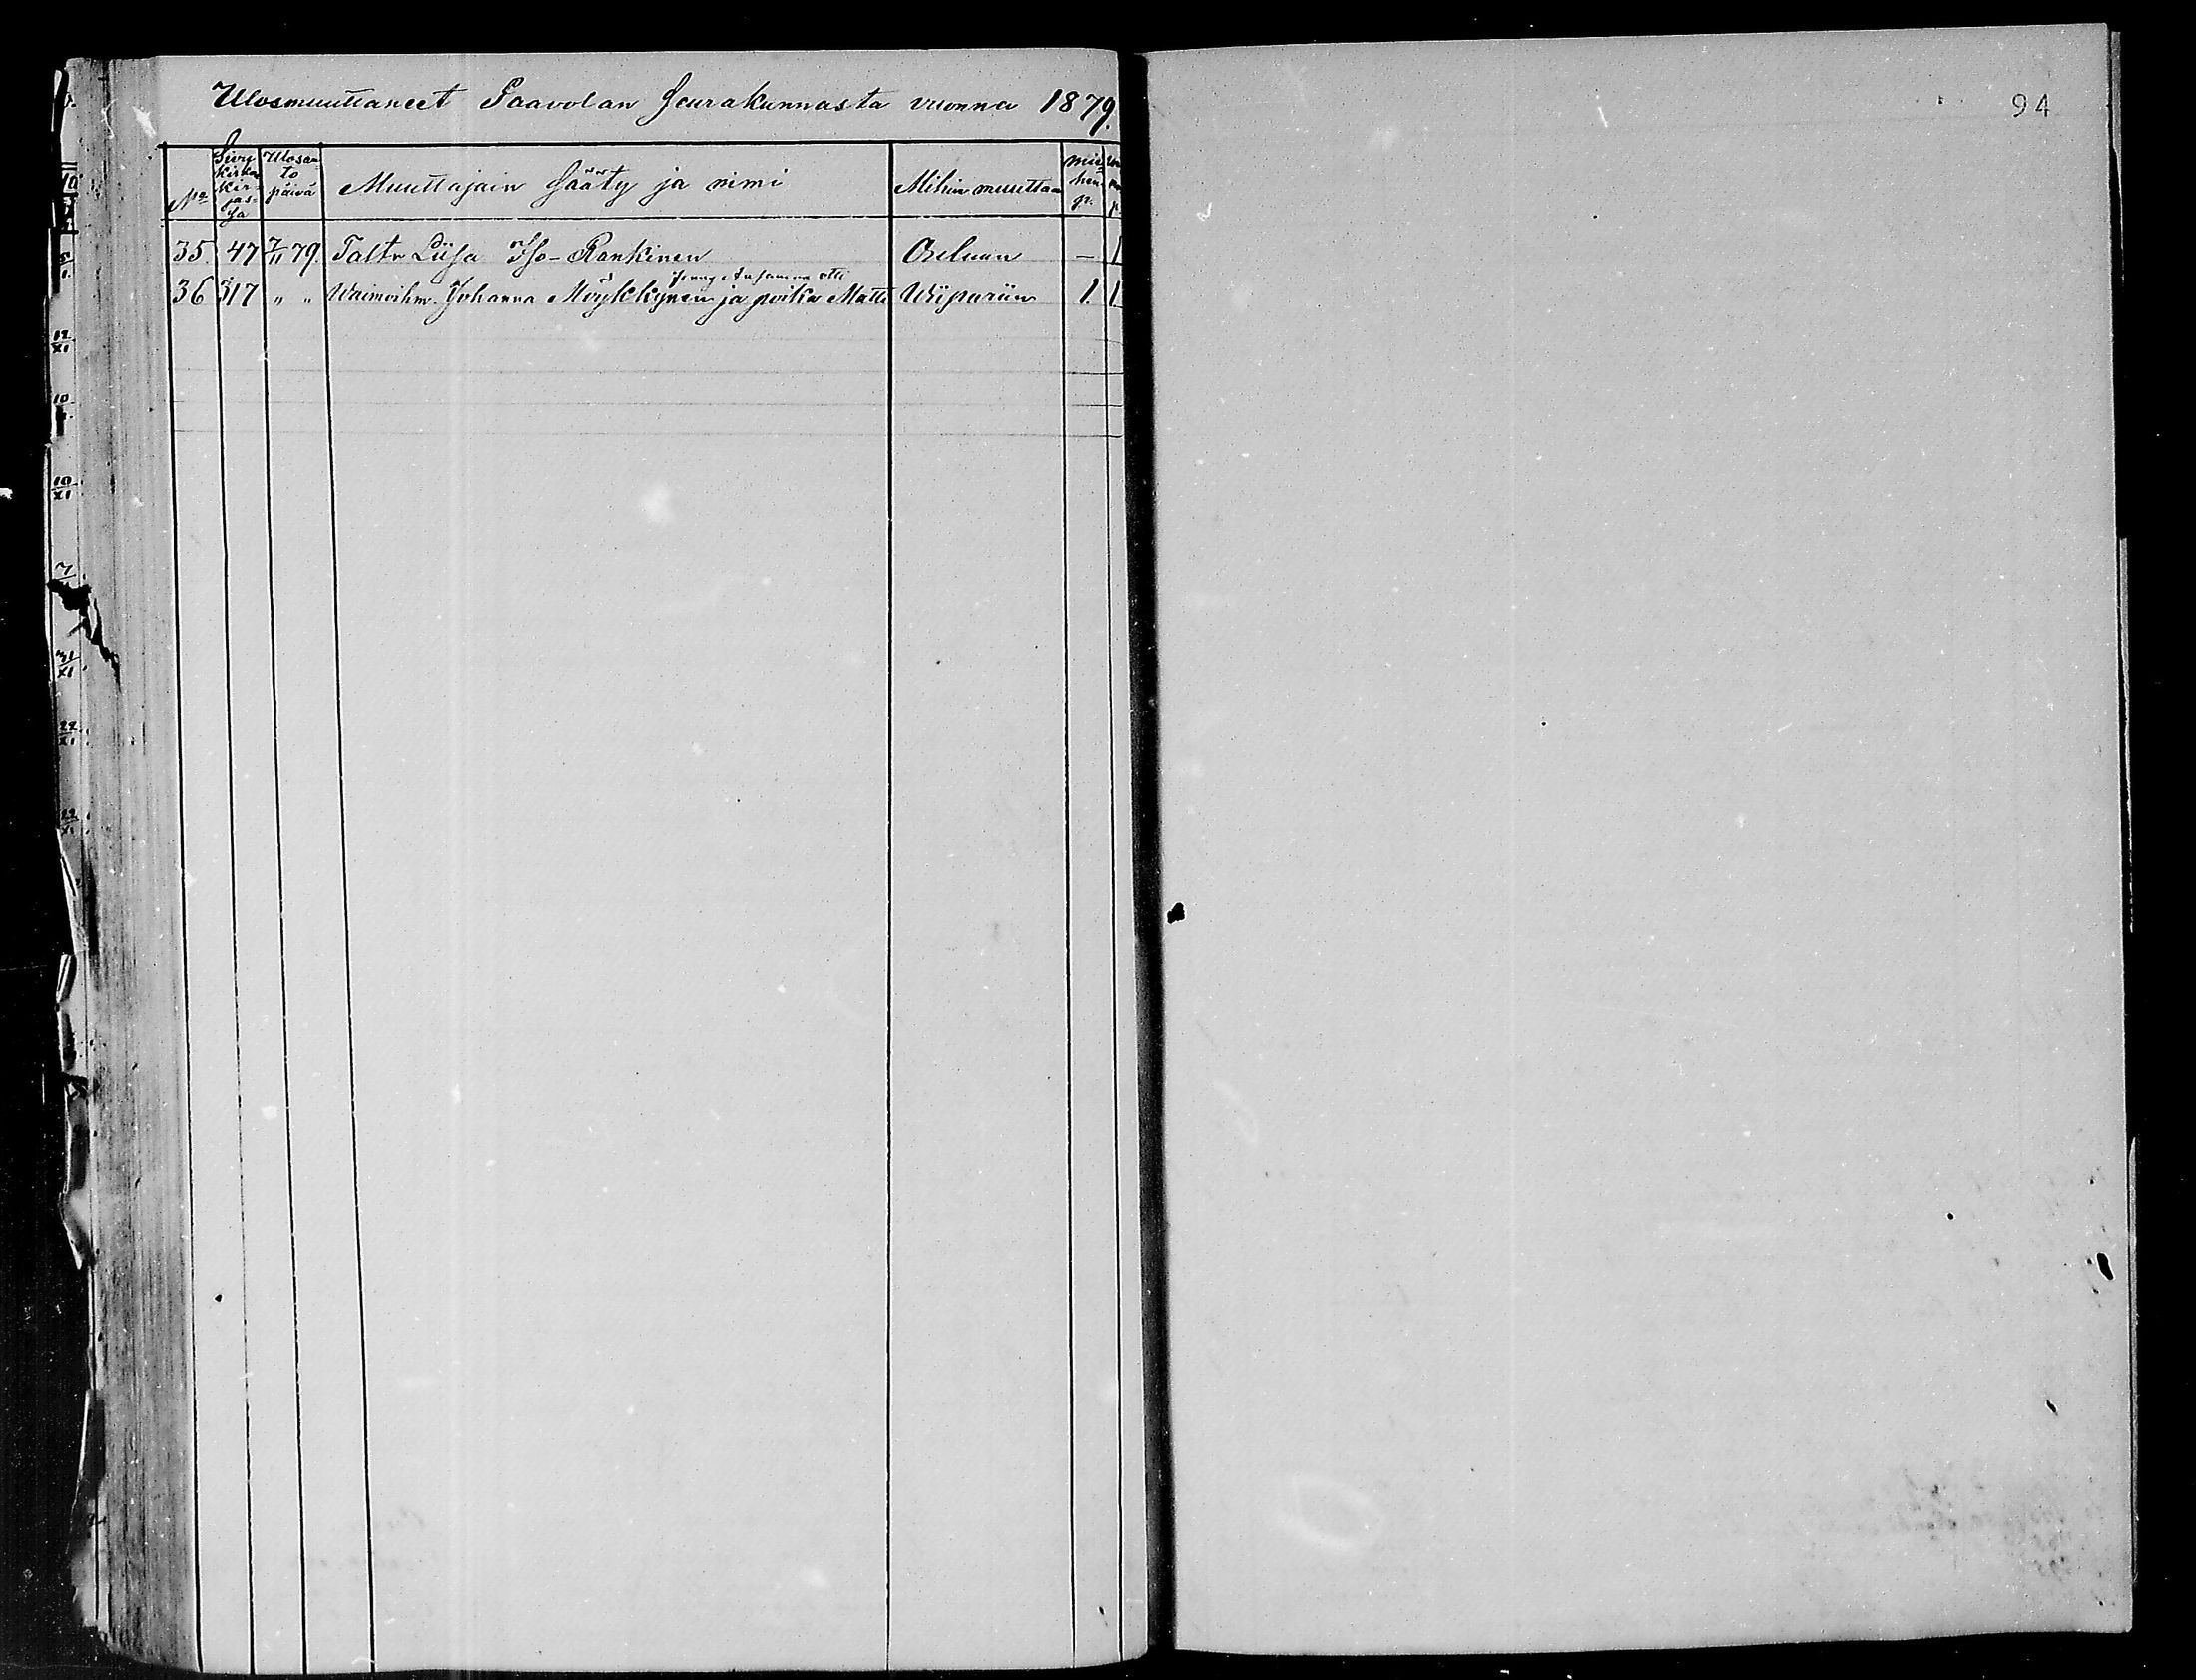 Ulosmuuttaneet Paavolan Seurakunnasta vuonna 1879.
94
No Sivu kirkon kirjassa Ulosanto päivä Muuttajain sääty ja nimi Mihin muuttaa miehen p.
35. 47 7/11 79. Taltr Liisa Iso-Rankinen Ouluun – 1
36 317 " " Waimoihm. Johanna Möykkynen ja poika Matti Wiipuriin 1. 1
12/XI
10
10/XI
7
31/XI
22/XI
22/XI